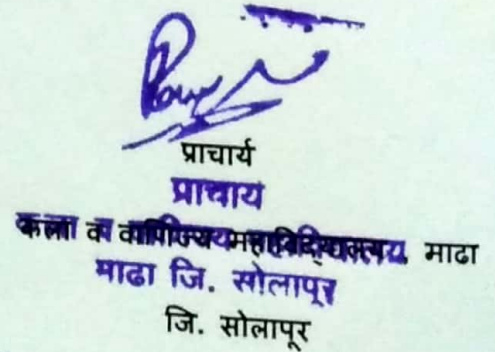 प्राचार्य
प्राचार्य
कला व वाणिज्य महाविद्यालय, माढा
माढा जि. सोलापूर
जि. सोलापूर